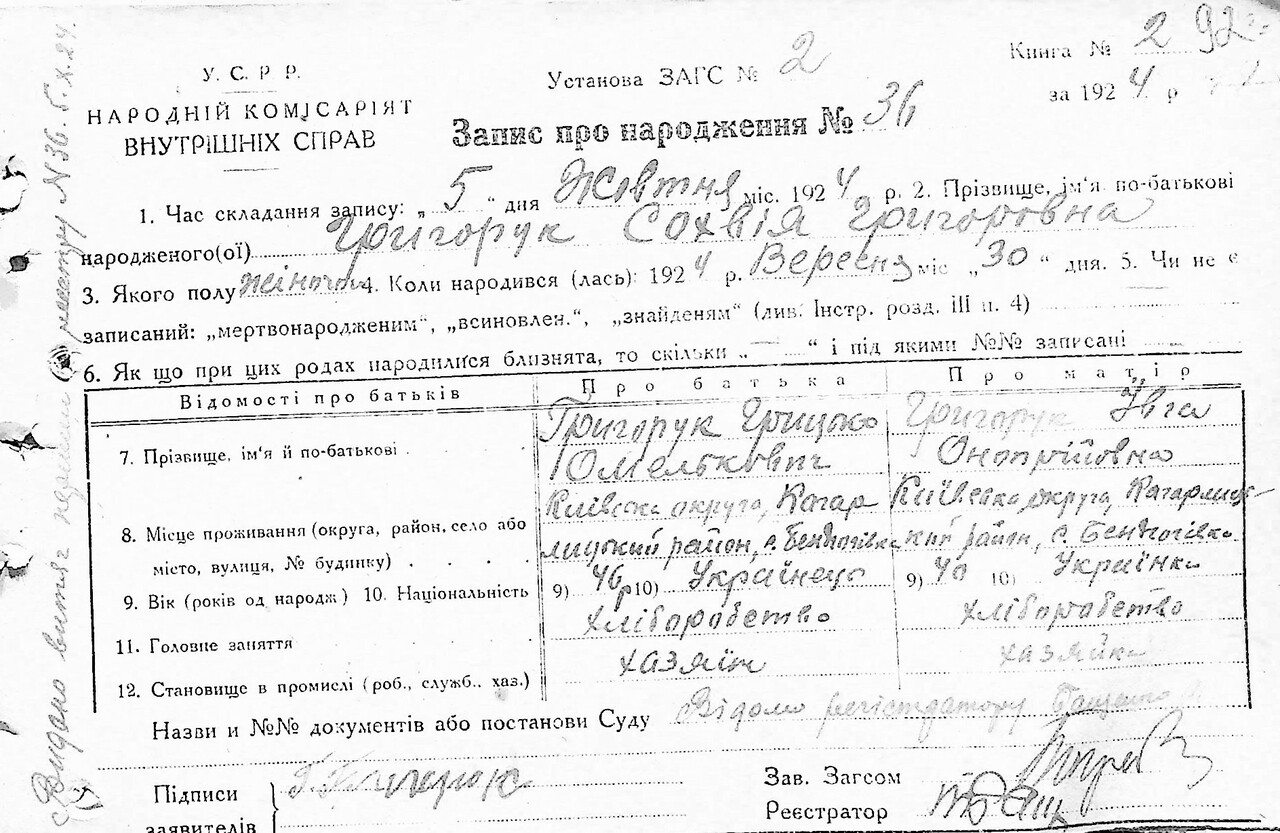 У. С. Р. Р.
НАРОДНІЙ КОМІСАРІЯТ
ВНУТРІШНІХ СПРАВ
Установа ЗАГС № 2
Книга № 2
за 1924 р
Запис про народження № 36
1. Час складання запису: „ 5 “ дня Жовтня міс. 1924 р. 2. Прізвище, ім'я по-батькові
народженого(ої) Григорук Сохвія Григоровна
3. Якого полу жіночого 4. Коли народився (лась): 1924 р. Вересня міс „30“ дня. 5. Чи не є
записаний: „мертвонародженим“, „всиновлен.“, „знайденям“ (див. Інстр. розд. III п. 4)
6. Як що при цих родах народилися близнята, то скільки „—“ і під якими №№ записані
Відомості про батьків Про батька Про матір
7. Прізвище, ім'я й по-батькові Григорук Грицько Омелькович Григорук Ївга Онопрійовна
8. Місце проживання (округа, район, село або
місто, вулиця, № будинку)
Київська округа, Кагар
лицький район, с. Бендюгівка
Київська округа, Кагарлиць-
кий район, с. Бендюгівка
9. Вік (років од народж) 10. Національність 9) 46 р 10) Українець 9) 40 10) Українка
11. Головне заняття хліборобство хліборобство
12. Становище в промислі (роб., служб.. хаз.) хазяїн хазяйка
Назви и №№ документів або постанови Суду Відомо регістратору
Підписи
заявителів
Зав. Загсом
Реєстратор
Видано витяг метрики N36. 5.X.24.